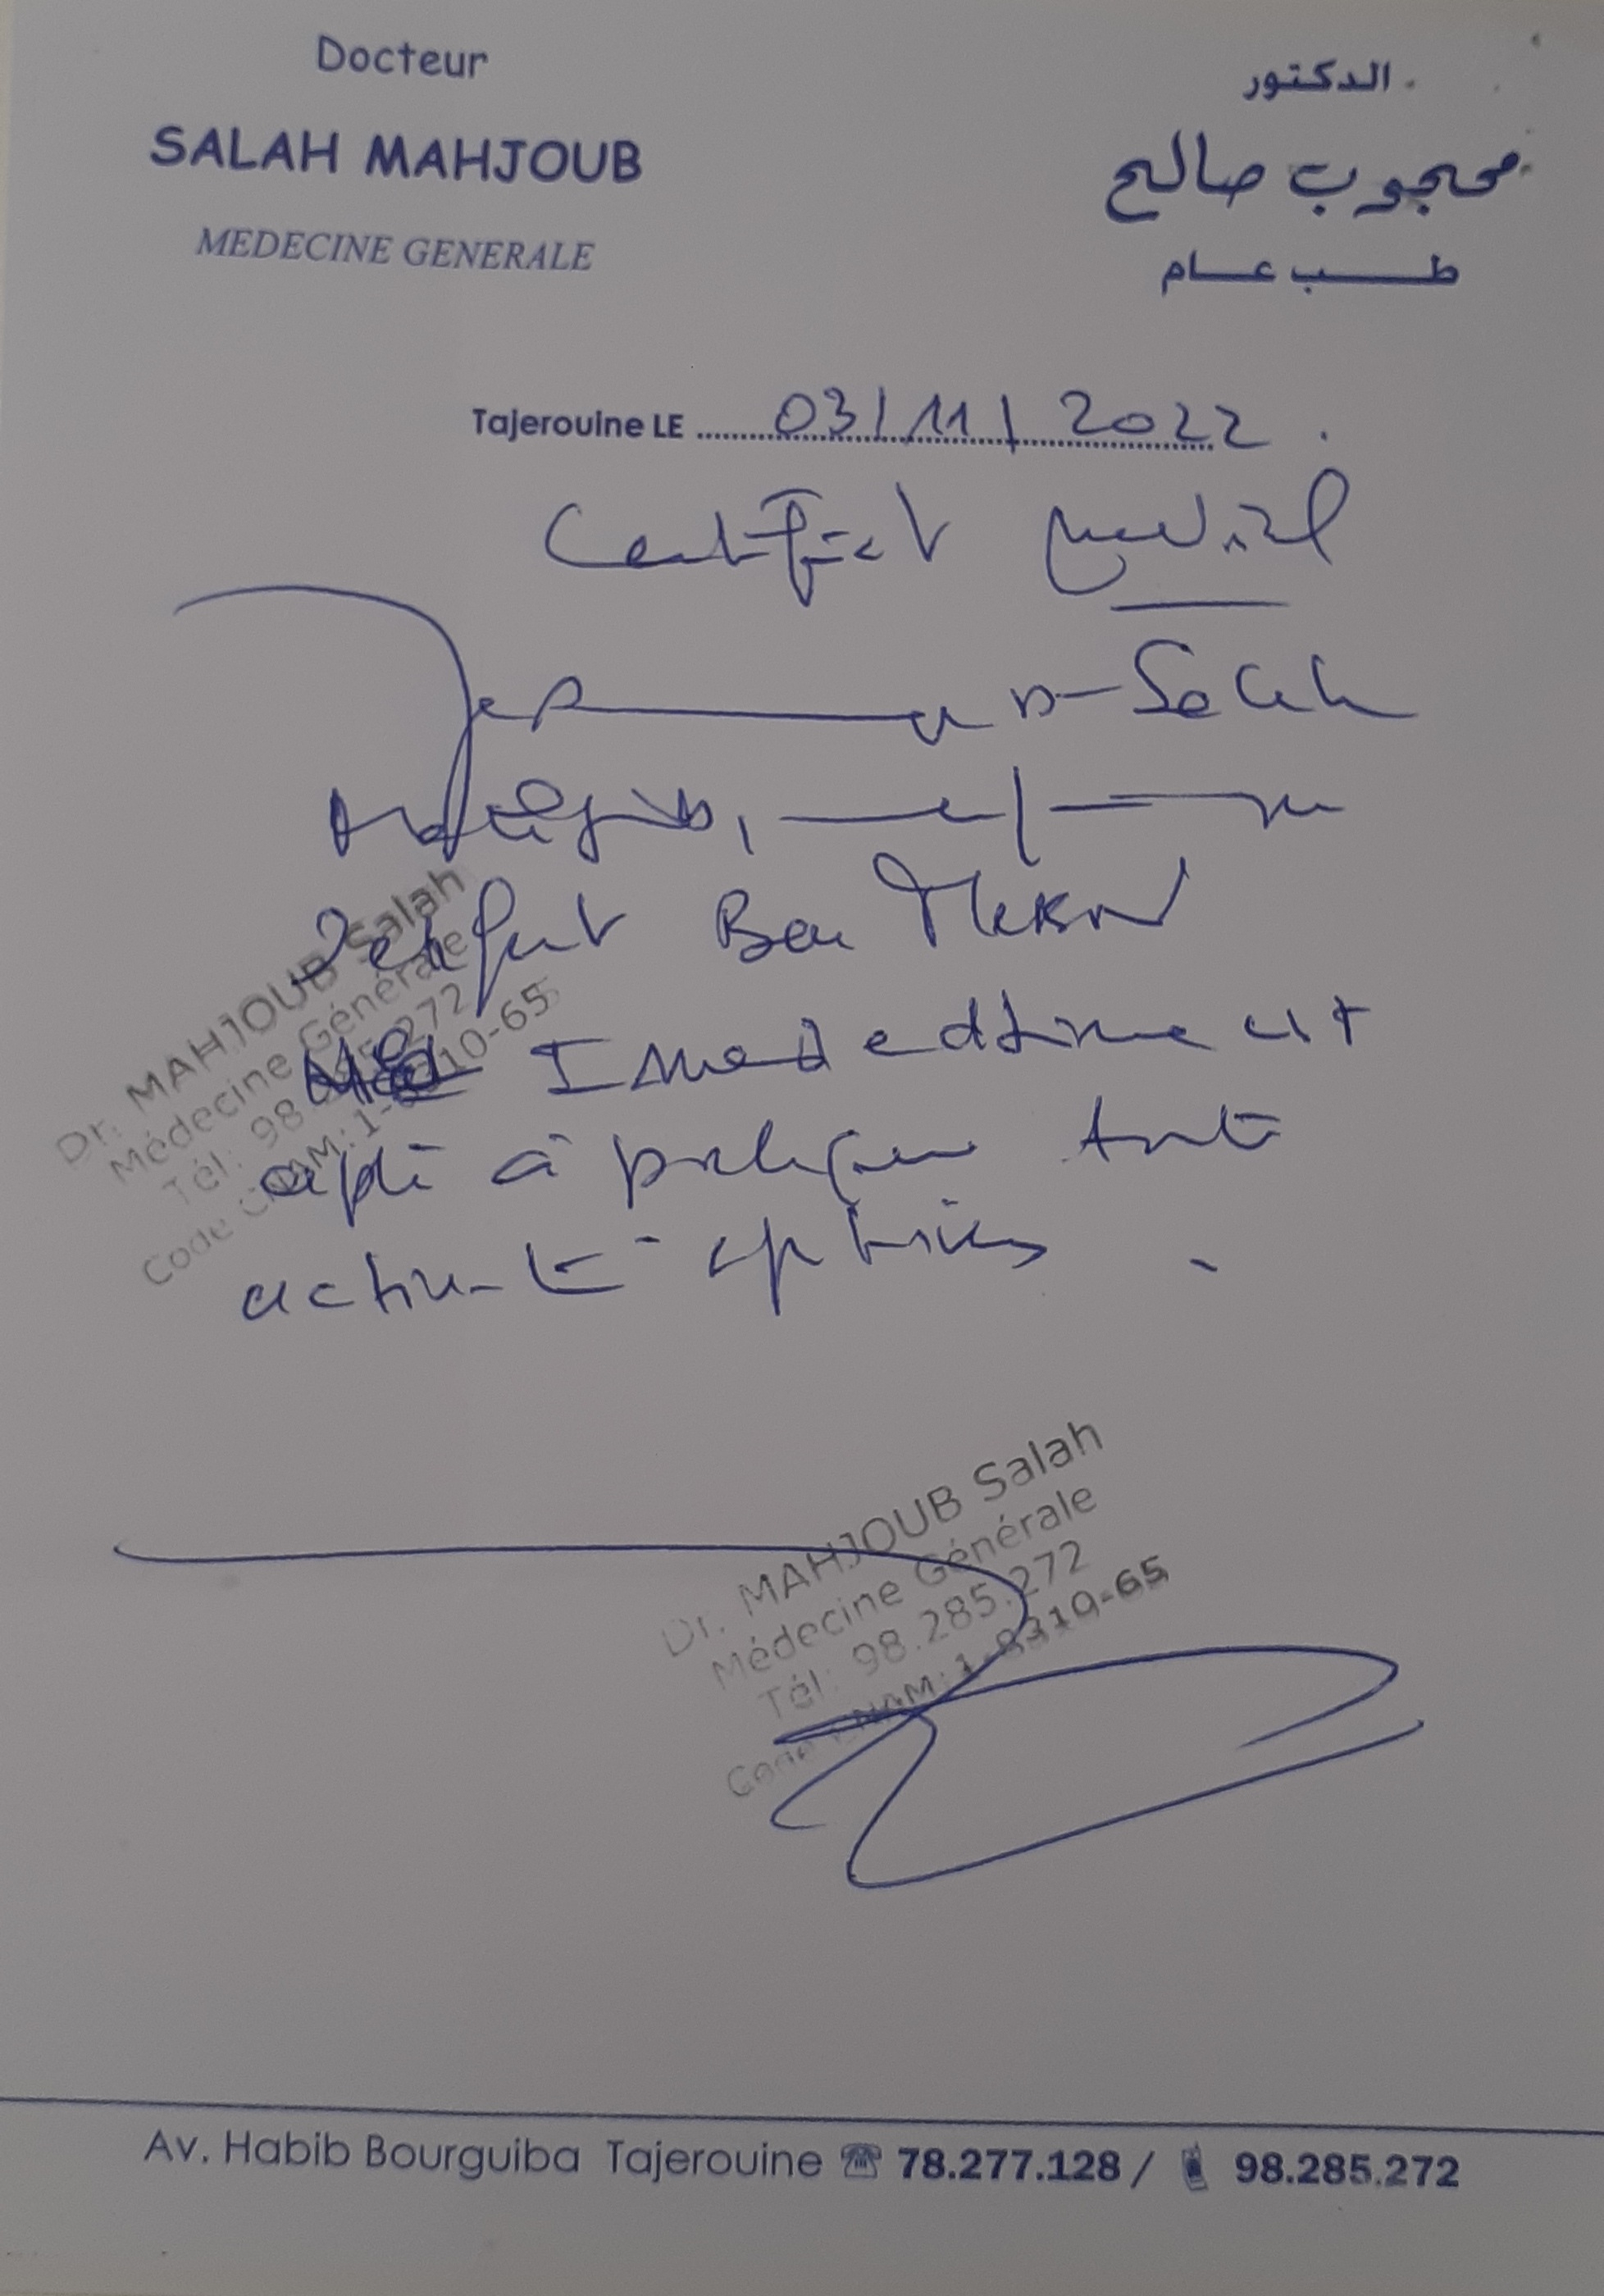 Docteur
SALAH MAHJOUB
MEDECINE GENERALE
الدكتور
محجوب صالح
طب عام
Tajerouine LE 03/11/2022.
Certificat médical
Dr Salah
Mahjoub,
l'enfant Ben
Imed est
apte à pratiquer toute
activité
Dr. MAHJOUB Salah
Médecine Générale
Tél: 98.285.272
Code CNAM: 1-8310-65
Dr. MAHJOUB Salah
Médecine Générale
Tél: 98.285.272
Code CNAM: 1-8310-65
Av. Habib Bourguiba Tajerouine ☎ 78.277.128 / 98.285.272